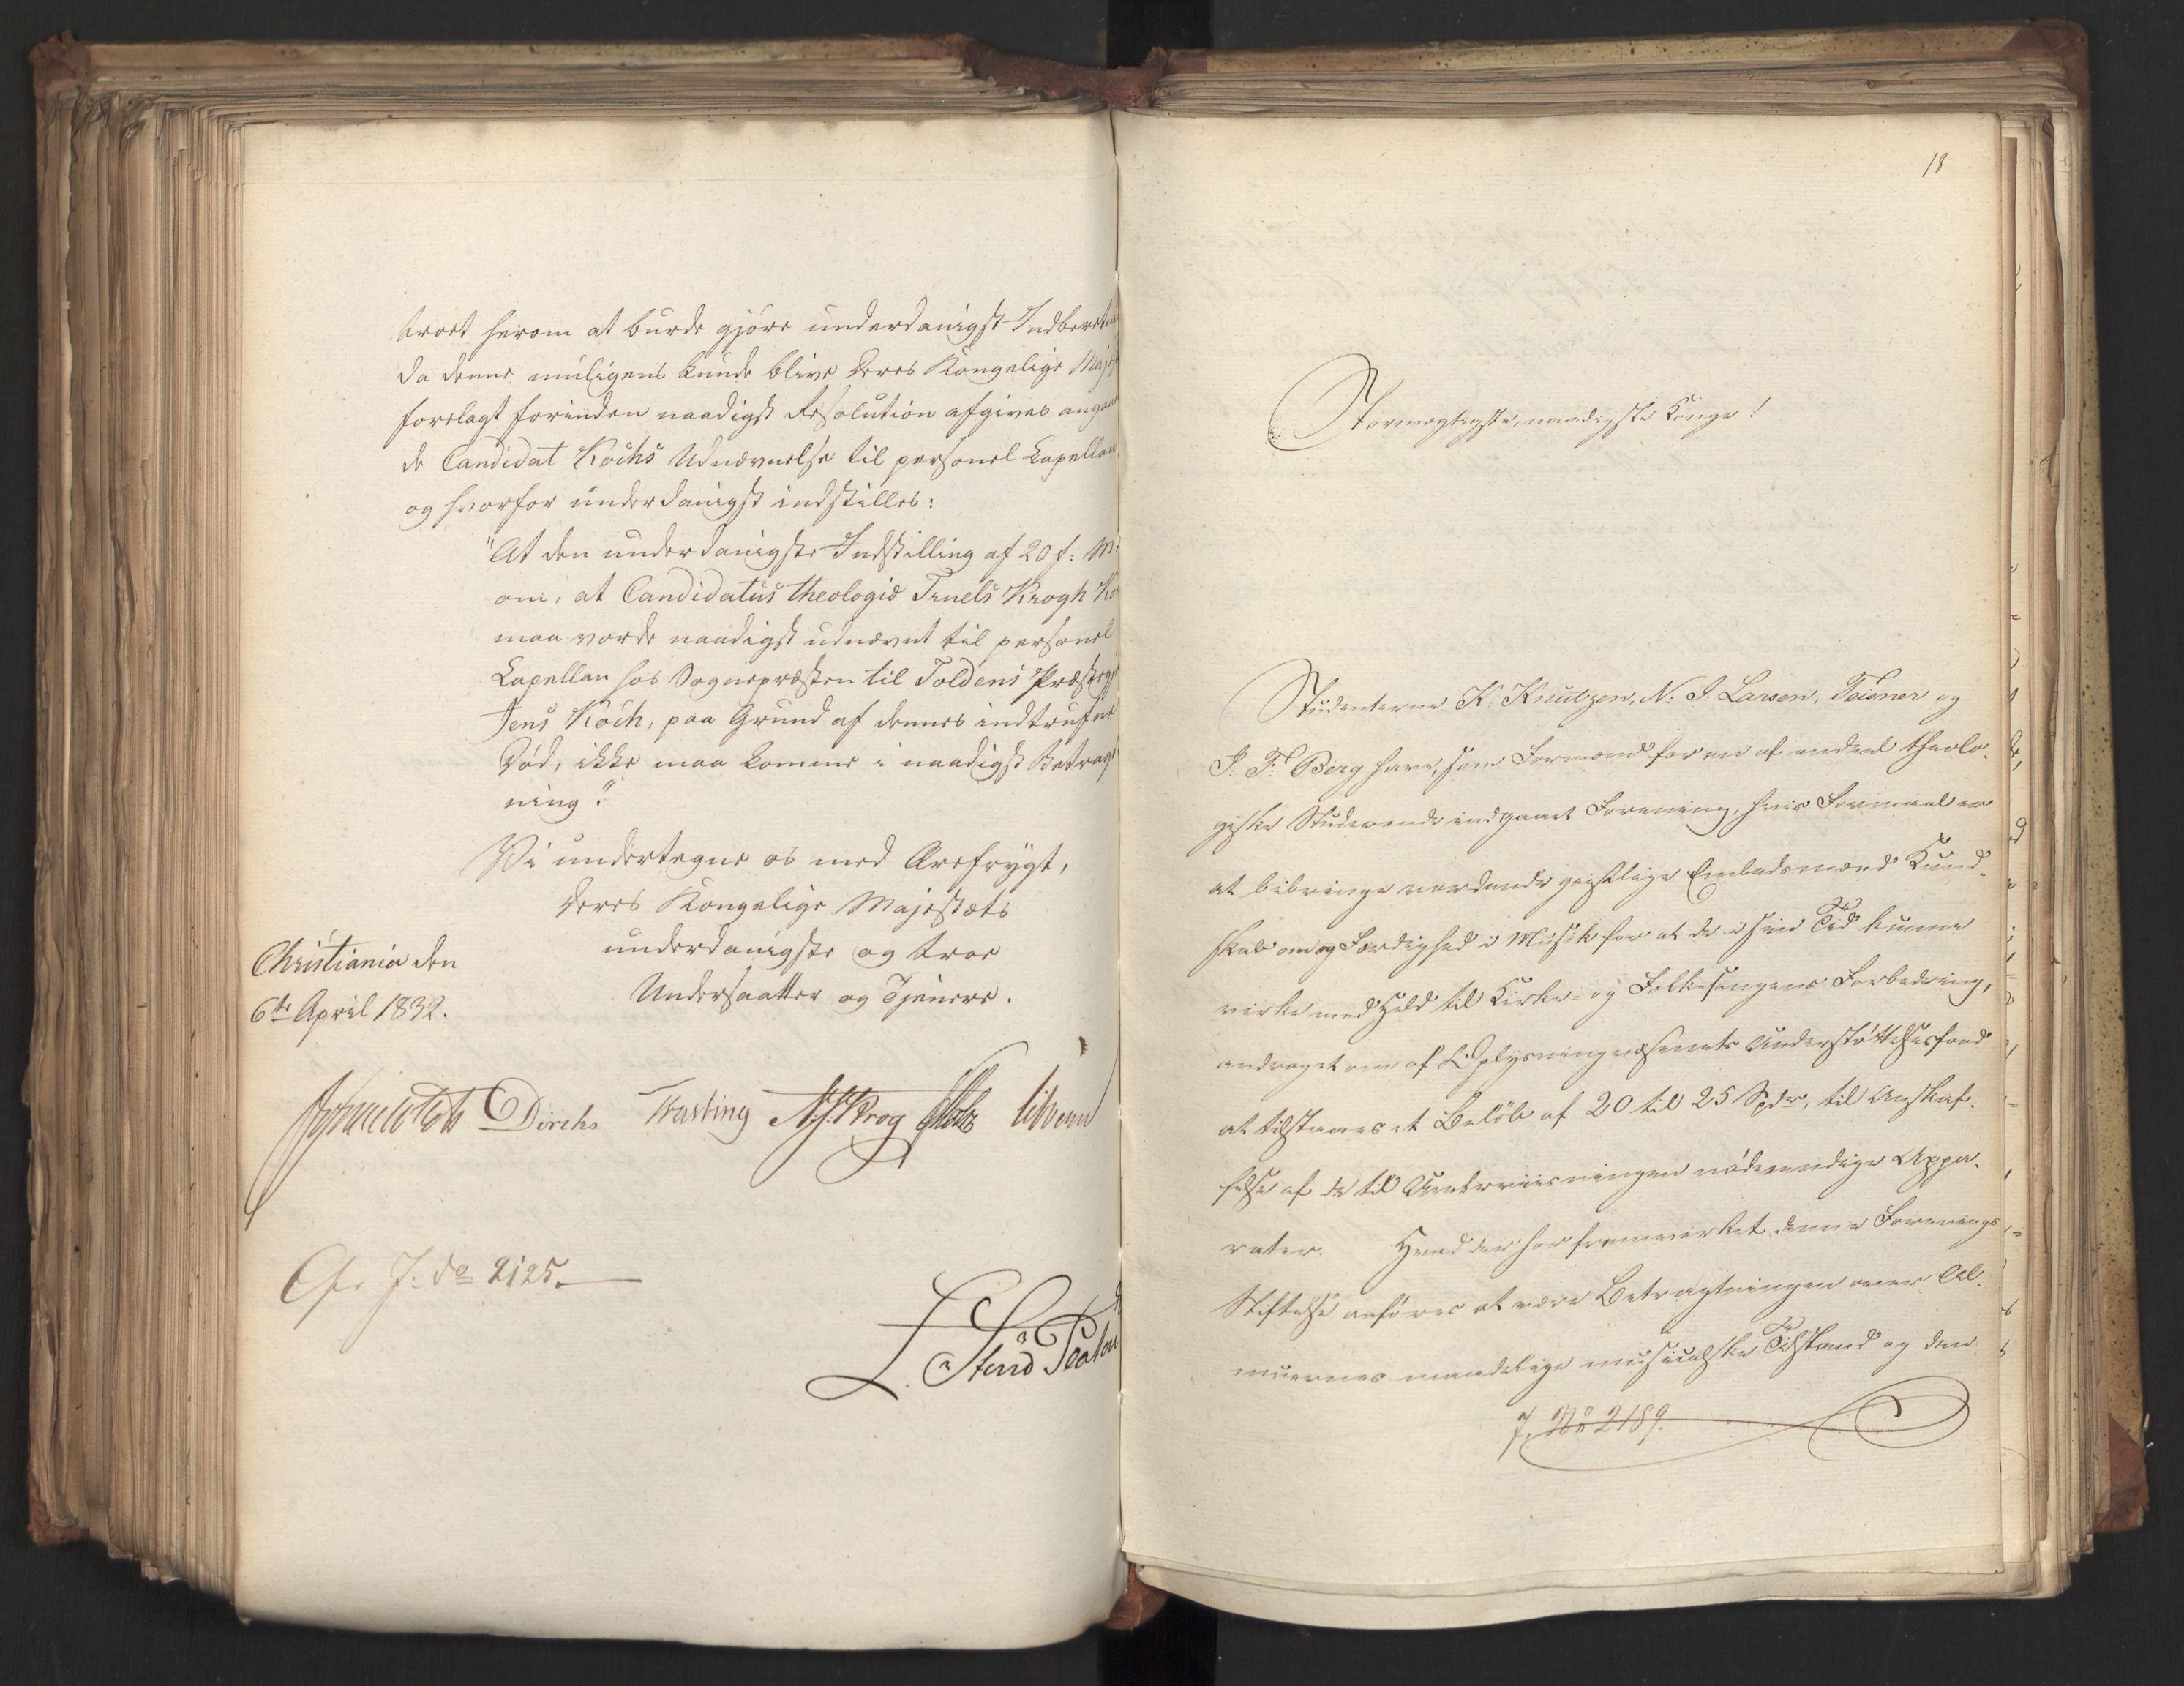 troet herom at burde gjøre underdanigst Indberetni
da denne muligens kunde blive Deres Kongelige Majest
forelagt forinden naadigst Resolution afgives angaaen
de Candidat Kochs Udnævnelse til personel Capellan,
og hvorfor underdanigst indstilles:
"At den underdanigste Indstilling af 20 f: M:
om, at Candidatus theologiæ Truels Krogh Ko
maa vorde naadigst udnævnt til personel
Capellan hos Sognepræsten til Foldens Præstegj
Jens Koch, paa Grund af dennes indtrufne
Død, ikke maa komme i naadigst Betragt
ning."
Vi undertegne os med Ærefrygt,
Deres Kongelige Majestæts
underdanigste og troe
Undersaatter og Tjenere.
Christiania den
6te April 1832.
Diriks Fasting Krog
Cfr J: No 2125.
18
Stormægtigste, naadigste Konge!
Studenterne K. Knutzen, N. J. Larsen, Teisner og
J. F. Berg have, som Formænd for en af endeel theolo-
giske Studerende indgaaet Forening, hvis Formaal er
at bibringe vordende geistlige Embedsmænd Kund-
skab om og Færdighed i Musik for at de i sin Tid kunne
virke med Held til Kirke- og Folkesangens Forbedring,
andraget om af Oplysningvæsenets Understøttelsesfond
at tilstaaes et Beløb af 20 til 25 Spdr, til Anskaf-
felse af de til Underviisningen nødvendige Appa-
rater. Hvad der har fremvirket denne Forenings
Stiftelse anføres at være Betragtningen over Al-
muernes maadelige musicalske Tilstand og den
J. No 2189.